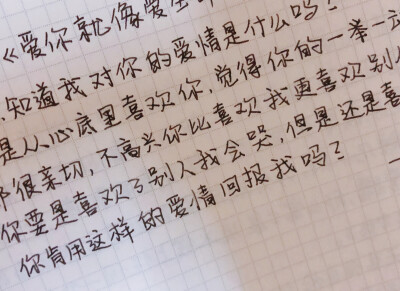 《爱你就像爱生
知道我对你的爱情是什么吗?
是从心底里喜欢你,觉得你的一举一动
很亲切,不高兴你比喜欢我更喜欢别人
你要是喜欢了别人我会哭,但是还是喜
你肯用这样的爱情回报我吗?